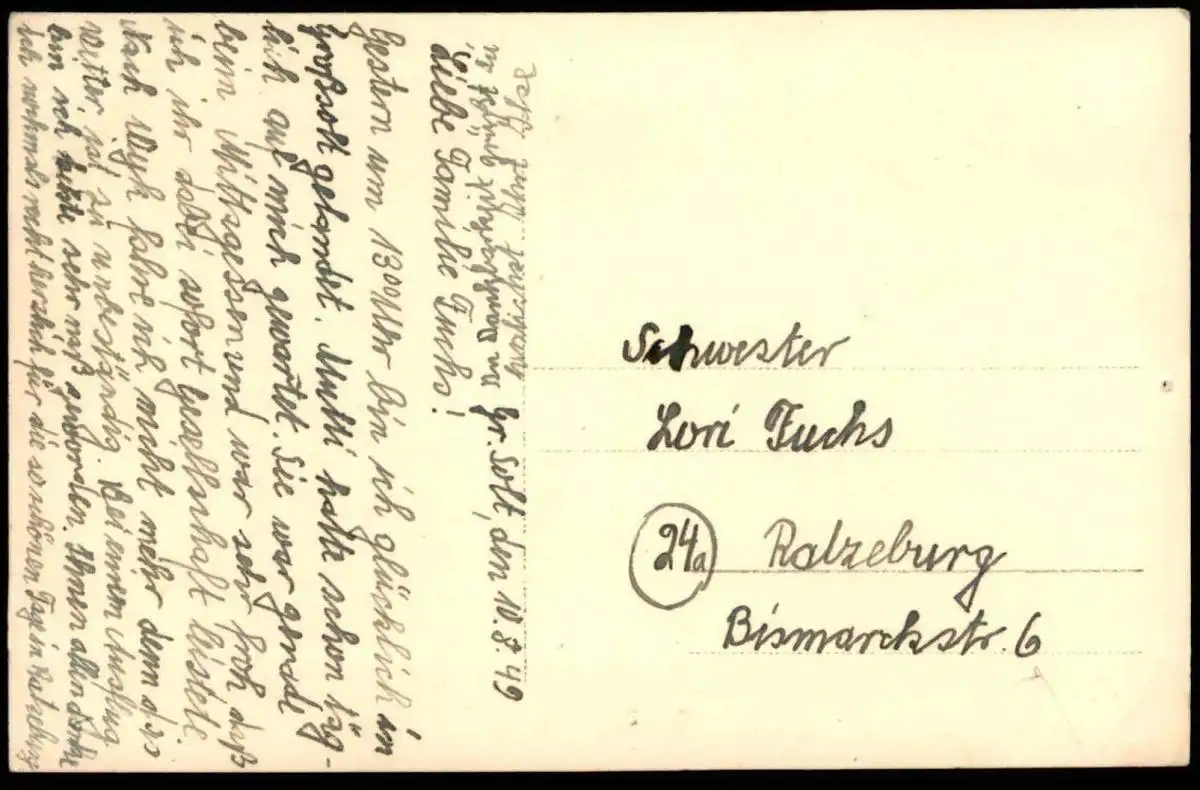 Gr. Solt, den 10.8.49
Liebe Familie Fuchs!
Gestern um 13⁰⁰ Uhr bin ich glücklich in
Großsolt gelandet. Mutti hatte schon täg-
lich auf mich gewartet. Sie war gerade
beim Mittagessen und war sehr froh daß
ich ihr dabei sofort Gesellschaft leistete.
Nach Wyk fahre ich nicht mehr denn das
Wetter ist zu unbeständig. Bei einem Ausflug
bin ich heute sehr naß geworden. Ihnen allen danke
ich nochmals recht herzlich für die so schönen Tage in Ratzeburg
In Dankbarkeit grüßt
Ihre
Schwester
Lori Fuchs
24a Ratzeburg
Bismarckstr. 6